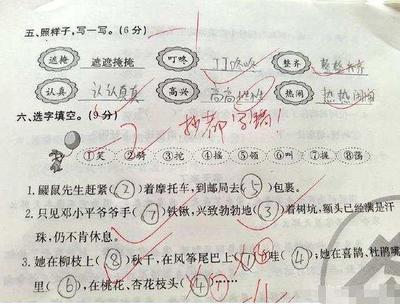 五、照样子,写一写。(6分)
遮掩 遮遮掩掩 叮咚 丁丁咚咚 整齐 整整齐齐
认真 认认真真 高兴 高高兴兴 热闹 热热闹闹
六、选字填空。(9分)
①笑 ②骑 ③挖 ④摇 ⑤领 ⑥叫 ⑦握 ⑧荡
1. 鼹鼠先生赶紧(②)着摩托车,到邮局去(⑤)包裹。
2. 只见邓小平爷爷手(⑦)铁锹,兴致勃勃地(③)着树坑,额头已经满是汗
珠,仍不肯休息。
3. 她在柳枝上(⑧)秋千,在风筝尾巴上 哇(④);她在喜鹊、杜鹃嘴
里(⑥),在桃花、杏花枝头(④)……